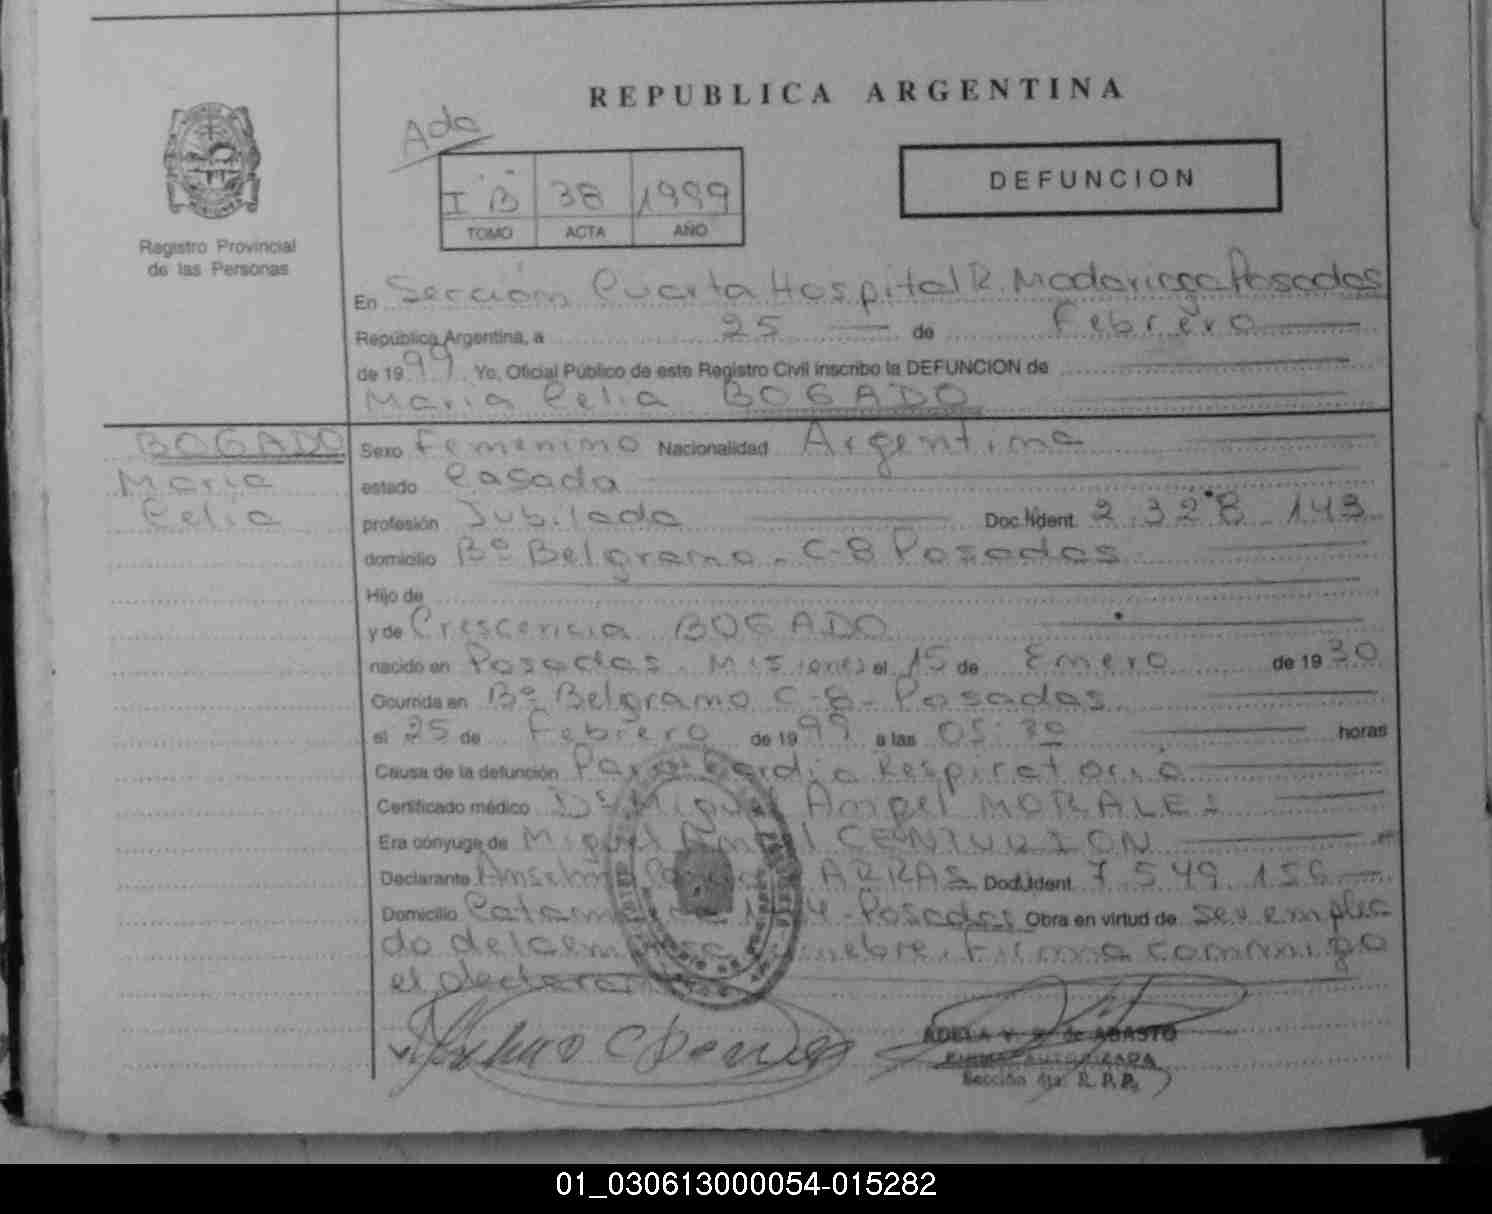 REPUBLICA ARGENTINA
Ada
I "B" 38 1999
TOMO ACTA AÑO
DEFUNCION
Registro Provincial
de las Personas
En Sección Cuarta Hospital R. Madariaga Posadas
República Argentina, a 25 de Febrero
de 1999 Yo, Oficial Público de este Registro Civil inscribo la DEFUNCION de
Maria Celia BOGADO
BOGADO
Maria
Celia
Sexo Femenino Nacionalidad Argentina
estado Casada
profesión Jubilada Doc. Ident. 2.328.143
domicilio Bº Belgrano - C-8 Posadas
Hijo de
y de Crescencia BOGADO
nacido en Posadas. Misiones el 15 de Enero de 1930
Ocurrida en Bº Belgrano C-8- Posadas
el 25 de Febrero de 1999 a las 05:30 horas
Causa de la defunción Paro Cardio Respiratorio
Certificado médico Dr Miguel Angel MORALES
Era cónyuge de Miguel Angel CENTURION
Declarante Anselmo ARRAS Doc. Ident. 7.549.156
Domicilio Posadas Obra en virtud de ser emplea
do de la empresa funebre. Firma conmigo
el declarante
ADELA V. de ABASTO
FIRMA AUTORIZADA
Sección 4ta. R.P.P.
01_030613000054-015282